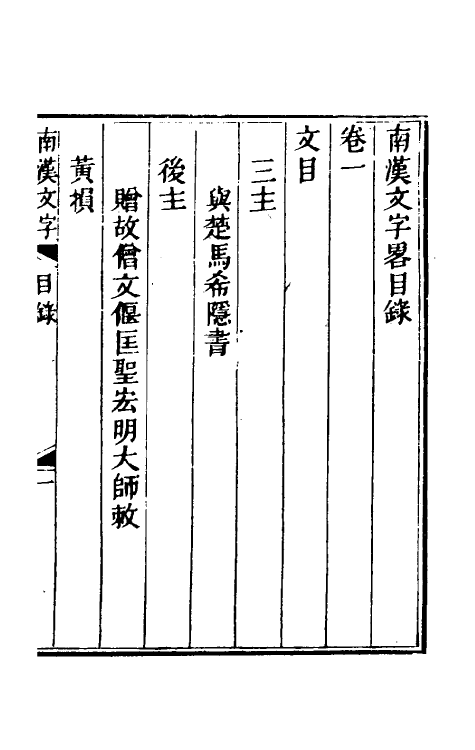 南漢文字畧目錄
卷一
文目
三主
與楚馬希隱書
後主
贈故僧文偃匡聖宏明大師敕
黃損
南漢文字 目錄 一